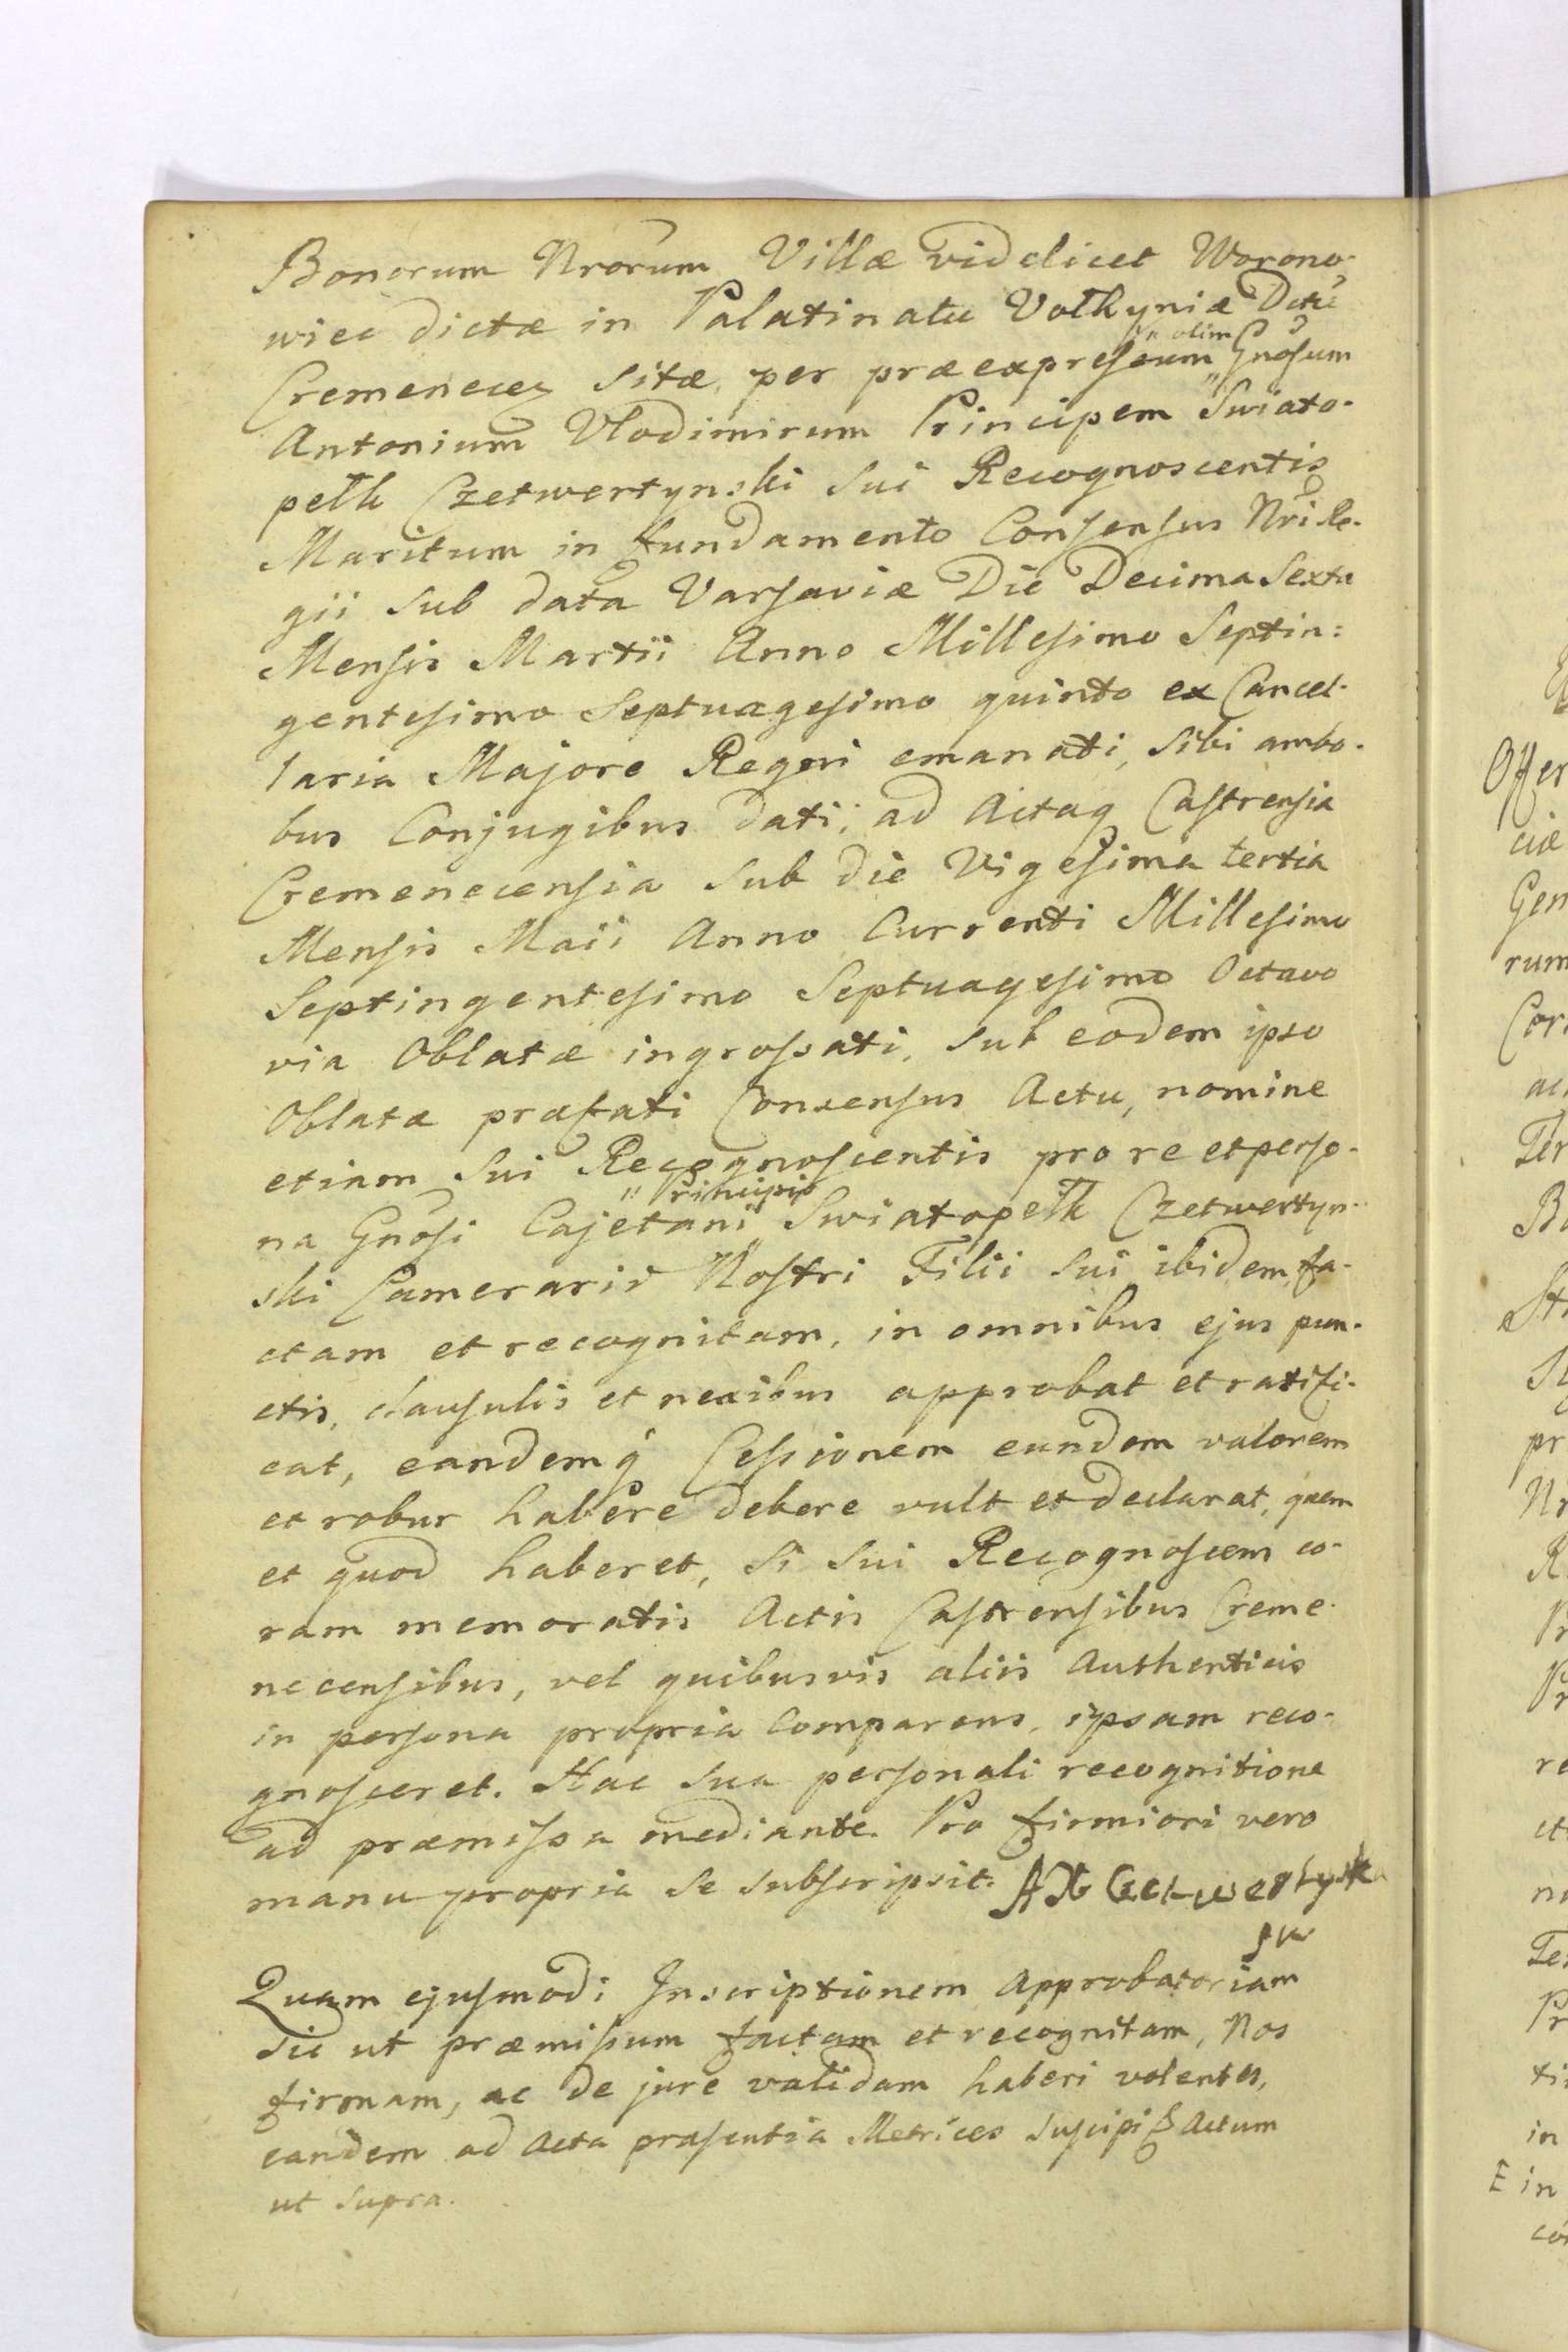 Bonorum Nrorum Villæ videlicet Worono-
wiec dictæ in Palatinatu Volhyniæ Dttu
Cremenecen sitæ, per præexpressum „Gnosum
„ olim
Antonium Vlodimirum Principem Swiato-
pelk Czetwertynski sui Recognoscentis
Maritum in fundamento Consensus Nri Re-
gii sub data Varsaviæ Die Decima Sexta
Mensis Martii Anno Millesimo Septin:
gentesimo Septuagesimo quinto ex Cancel-
laria Majore Regni emanati, sibi ambo-
bus Conjugibus dati; ad Actaq Castrensia
Cremenecensia sub die Vigesima tertia
Mensis Maii Anno Currenti Millesimo
Septingentesimo Septuagesimo Octavo
via Oblatæ ingrossati, sub eodem ipso
Oblatæ præfati Consensus Actu, nomine
etiam sui Recognoscentis pro re et perso-
na Gnosi Cajetani „ Swiatopelk Czetwertyn-
„ Principis
ski Camerarii Nostri Filii sui ibidem fa-
ctam et recognitam, in omnibus ejus pun-
ctis, clausulis et nexibus approbat et ratifi-
cat, eandemq Cessionem eundem valorem
et robur habere debere vult et declarat, quem
et quod haberet, si sui Recognoscem co-
ram memoratis Actis Castrensibus Creme-
necensibus, vel quibusvis aliis Authenticis
in persona propria comparens, ipsam reco-
gnosceret. Hac sua personali recognitione
ad præmissa mediante. Pro firmiori vero
manu propria se subscripsit.
Quam ejusmodi Inscriptionem Approbatoriam
sic ut præmissum factam et recognitam, Nos
firmam, ac de jure validam haberi volentes,
eandem ad Acta præsentia Metrices suscipi Actum
ut supra.